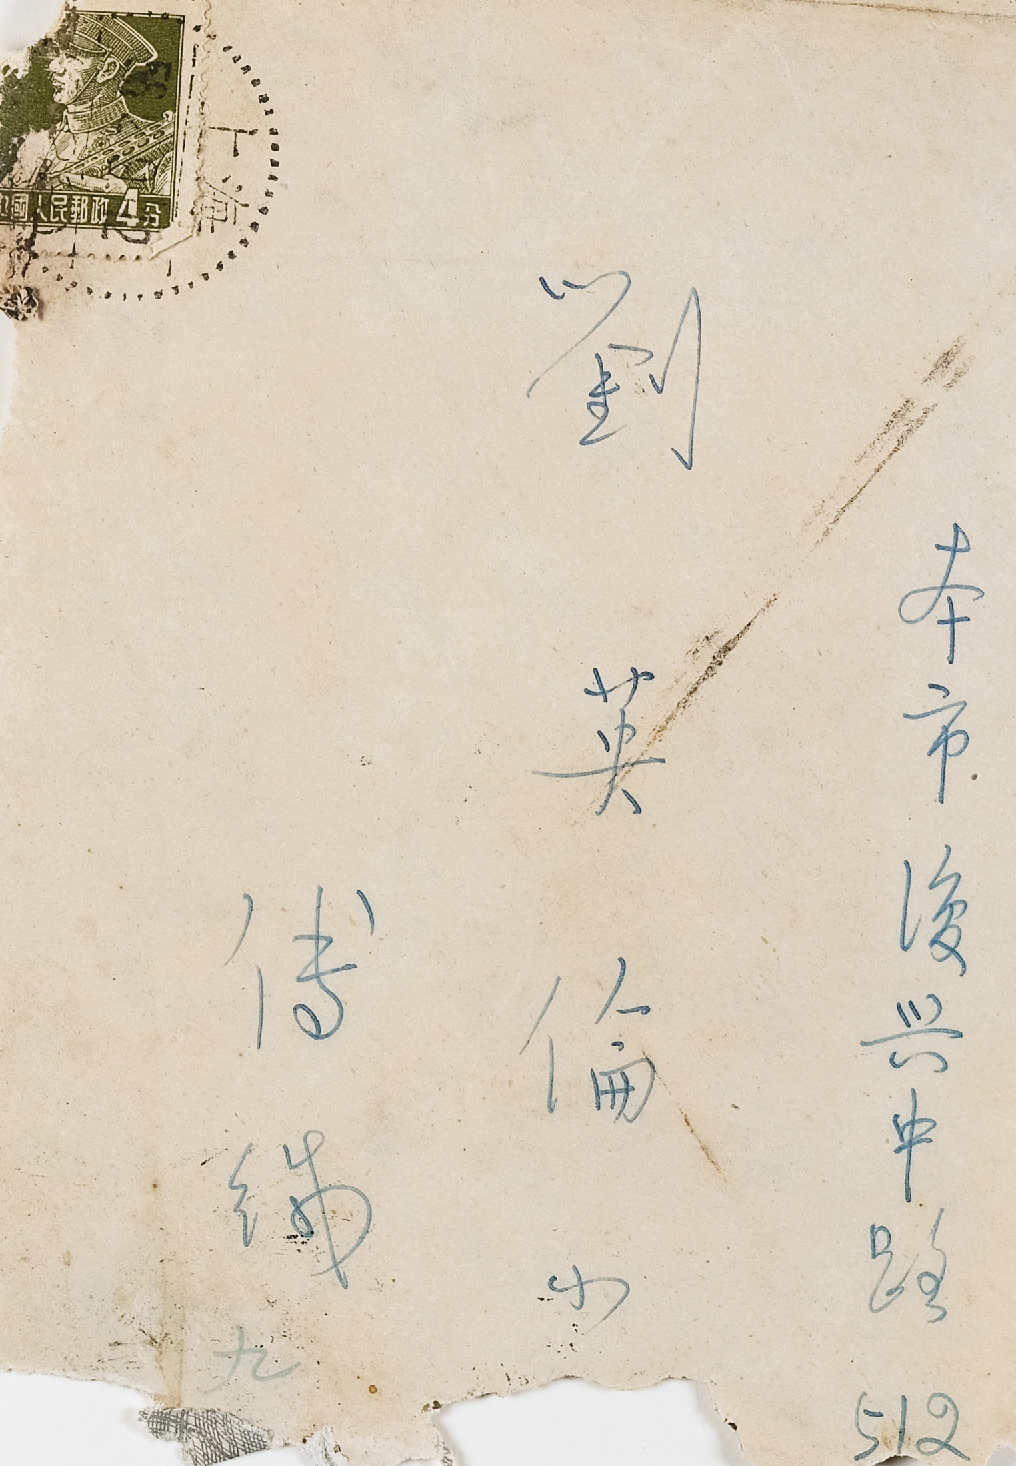 本市復兴中路512
劉英倫小
傅
九
中國人民郵政4分
上海